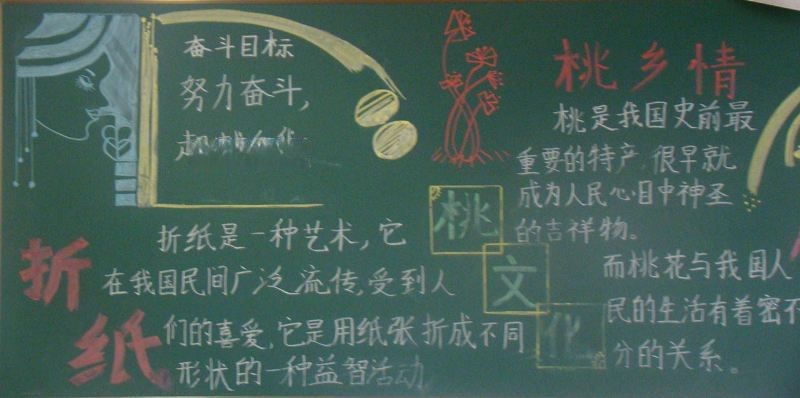 奋斗目标
努力奋斗,
桃乡情
桃是我国史前最
重要的特产,很早就
成为人民心目中神圣
的吉祥物。
桃
文
化
而桃花与我国人
民的生活有着密不
分的关系。
折
纸
折纸是一种艺术,它
在我国民间广泛流传,受到人
们的喜爱,它是用纸张折成不同
形状的一种益智活动